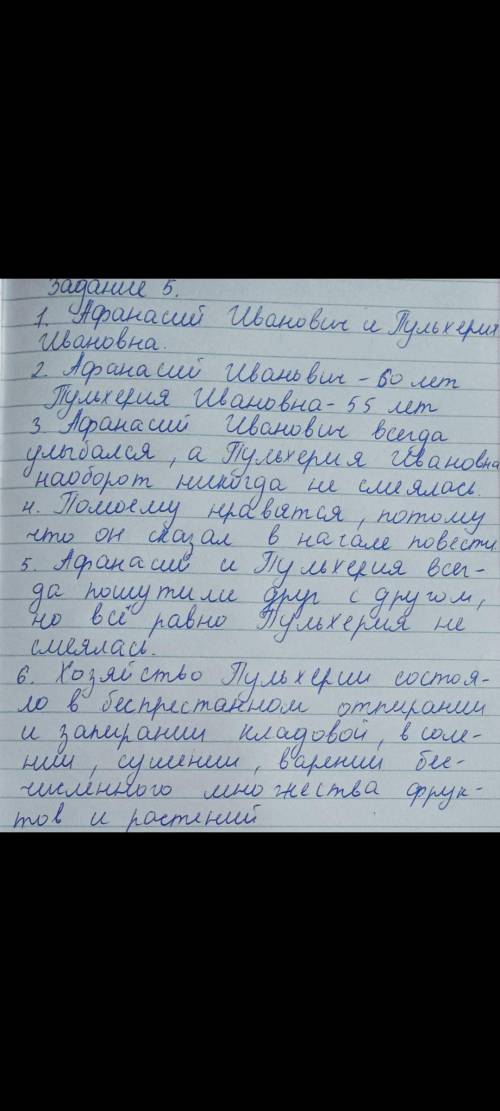 Задание 5.
1. Афанасий Иванович и Пульхерия
Ивановна.
2. Афанасий Иванович - 60 лет
Пульхерия Ивановна - 55 лет
3. Афанасий Иванович всегда
улыбался, а Пульхерия Ивановна
наоборот никогда не смеялась.
4. Помоему нравятся, потому
что он сказал в начале повести
5. Афанасий и Пульхерия всег-
да пошутили друг с другом,
но всё равно Пульхерия не
смеялась.
6. Хозяйство Пульхерии состоя-
ло в беспрестанном отпирании
и запирании кладовой, в соле-
нии, сушении, варении бес-
численного множества фрук-
тов и растений